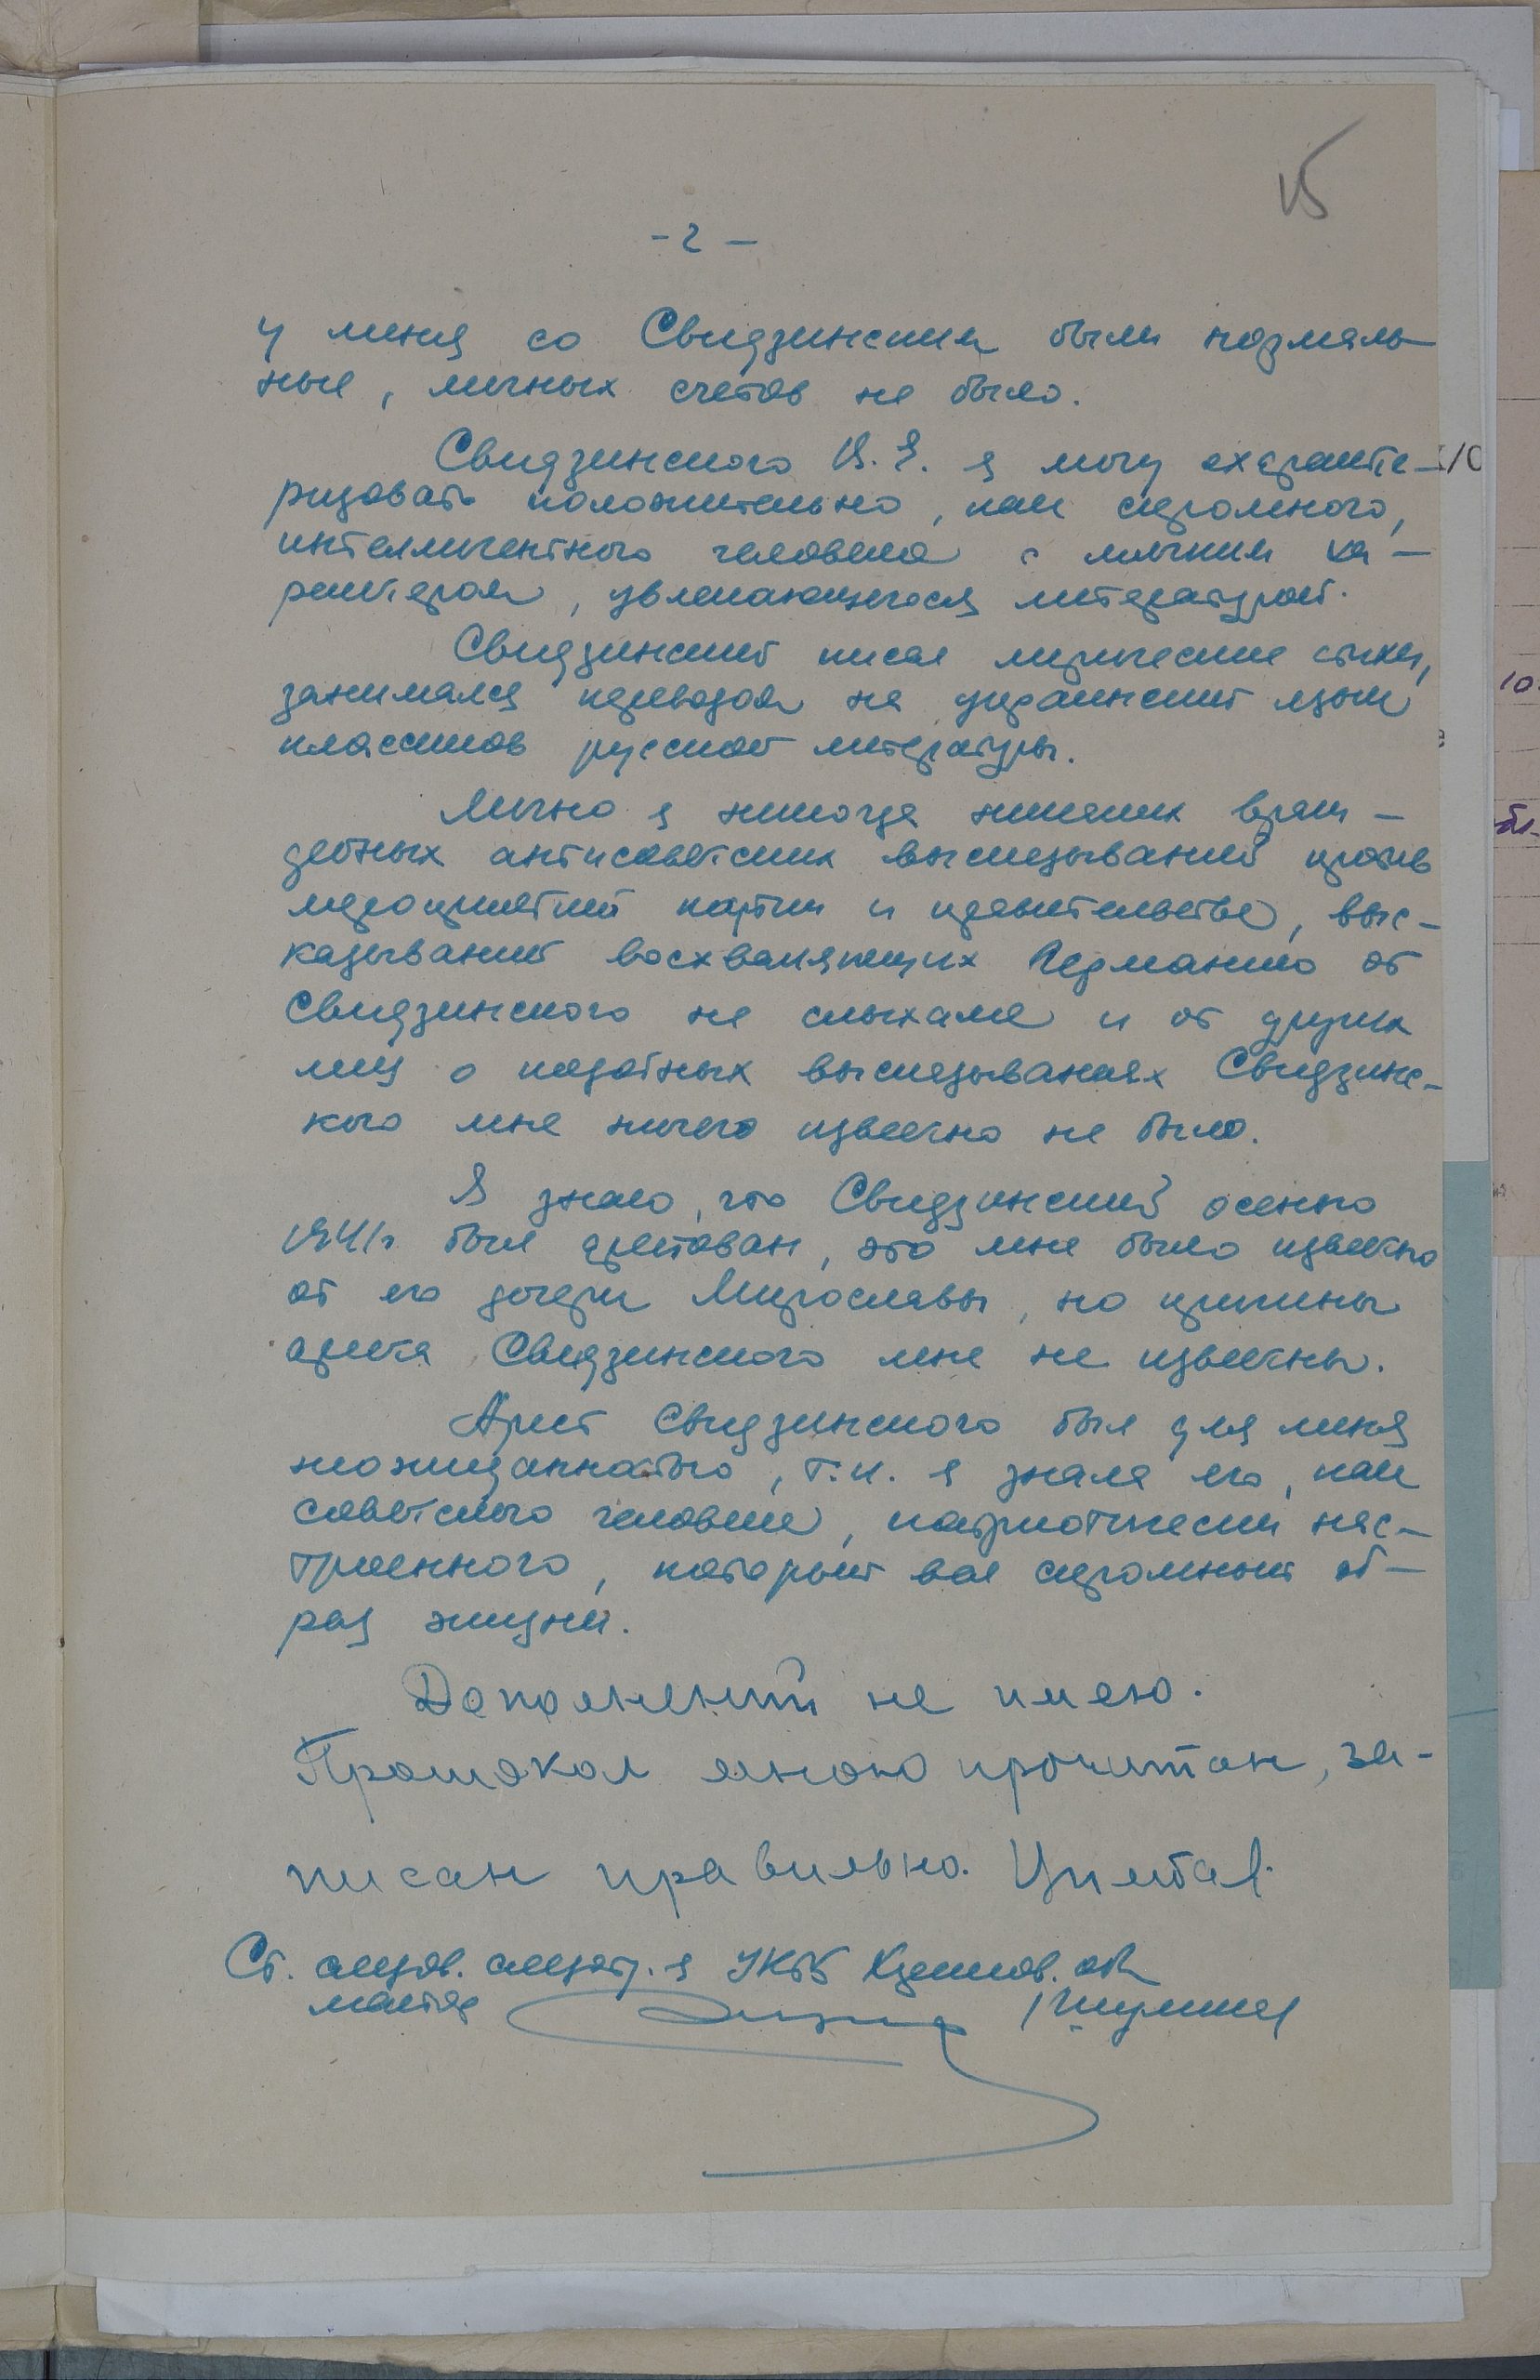 15
- 2 -
у меня со Свидзинским были нормаль-
ные, личных счетов не было.
Свидзинского В.Е. я могу охаракте-
ризовать положительно, как скромного,
интеллигентного человека с мягким ха-
рактером, увлекающегося литературой.
Свидзинский писал лирические стихи,
занимался переводом на украинский язык
классиков русской литературы.
Лично я никогда никаких враж-
дебных антисоветских высказываний против
мероприятий партии и правительства, выс-
казываний восхваляющих Германию от
Свидзинского не слыхала и от других
лиц о подобных высказываниях Свидзинс-
кого мне ничего известно не было.
Я знаю, что Свидзинский осенью
1941 г. был арестован, это мне было известно
от его дочери Мирославы, но причины
ареста Свидзинского мне не известны.
Арест Свидзинского был для меня
неожиданностью, т.к. я знала его, как
советского человека, патриотически нас-
троенного, который вел скромный об-
раз жизни.
Дополнений не имею.
Протокол мною прочитан, за-
писан правильно.
Ст. следов. следотд-я УКГБ Харьков. обл
майор